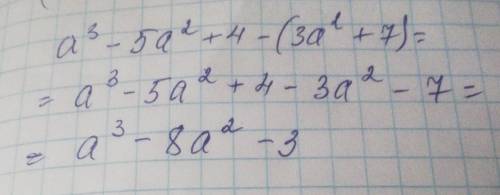 a³ - 5a² + 4 - (3a² + 7) =
= a³ - 5a² + 4 - 3a² - 7 =
= a³ - 8a² - 3